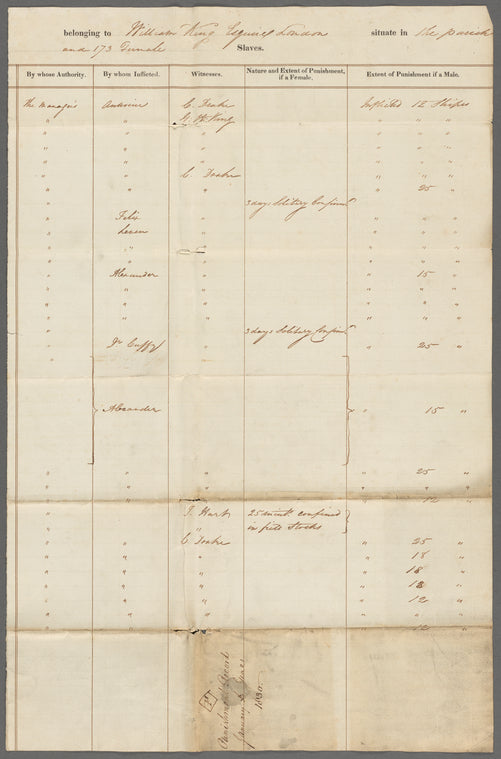 belonging to William King Esquire London situate in the parish
and 173 Female Slaves.
By whose Authority. By whom Inflicted. Witnesses. Nature and Extent of Punishment, if a Female. Extent of Punishment if a Male.
the Manager C. Deake Inflicted 12 Stripes
" " " " "
" " " " "
" " " " "
" " C. Deake " " "
" " " " 25 "
3 days Solitary Confinmt
" Felix " " " "
" " " " "
" " " " "
" Alexander " " 15 "
" " " " " "
" " " " " "
" " " " " "
3 days Solitary Confinmt
" Cuffy " " 25 "
"
Alexander " 15 "
" " " " 25 "
" " " " " "
" " " " 12 "
" J. Hart 25 confined
" " in feet Stocks
" " C. Deake " 25 "
" " " " 18 "
" " " " 18 "
" " " " 18 "
" " " " 12 "
" " " " " "
" " " " 12 "
Punishment Record
January to June
1830